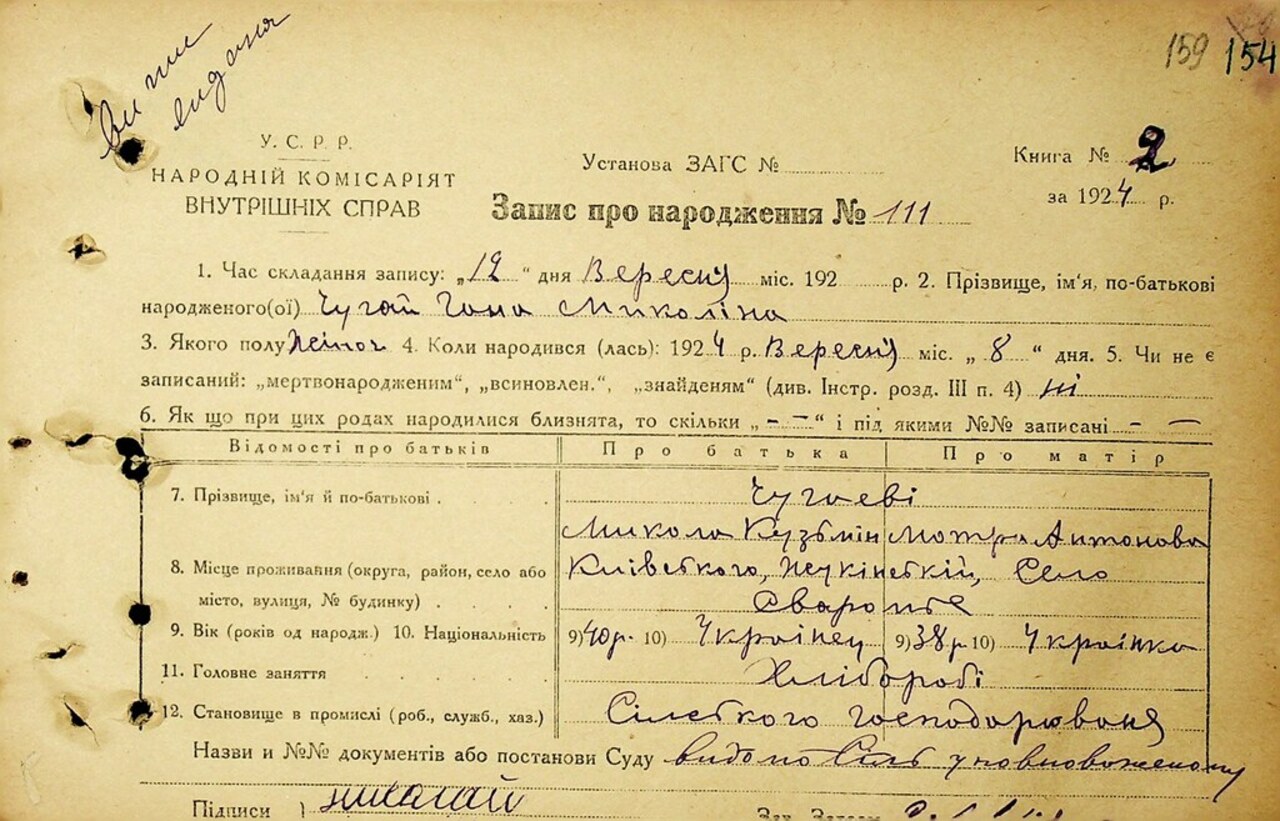 159 154
виписи
видана
У. С. Р. Р.
НАРОДНІЙ КОМІСАРІЯТ
ВНУТРІШНІХ СПРАВ
Установа ЗАГС №
Книга № 2
за 1924 р.
Запис про народження № 111
1. Час складання запису: „12“ дня Вересня міс. 192 р. 2. Прізвище, ім'я, по-батькові
народженого(ої) Чугай Гана Миколіна
3. Якого полу Жіноч 4. Коли народився (лась): 1924 р. Вересня міс. „8“ дня. 5. Чи не є
записаний: „мертвонародженим“, „всиновлен.“, „знайденям“ (див. Інстр. розд. III п. 4) ні
6. Як що при цих родах народилися близнята, то скільки „- —“ і під якими №№ записані - —
Відомості про батьків Про батька Про матір
7. Прізвище, ім'я й по-батькові Чугаеві
Микола Кузьмін Мотря Антонова
8. Місце проживання (округа, район, село або Київського, Село
місто, вулиця, № будинку)
9. Вік (років од народж.) 10. Національність 9) 40 р. 10) Українец 9) 38 р. 10) Українка
11. Головне заняття Хлібороби
12. Становище в промислі (роб., служб., хаз.) Сільського господарювання
Назви и №№ документів або постанови Суду уповноваженому
Підписи } Зав. Загсом